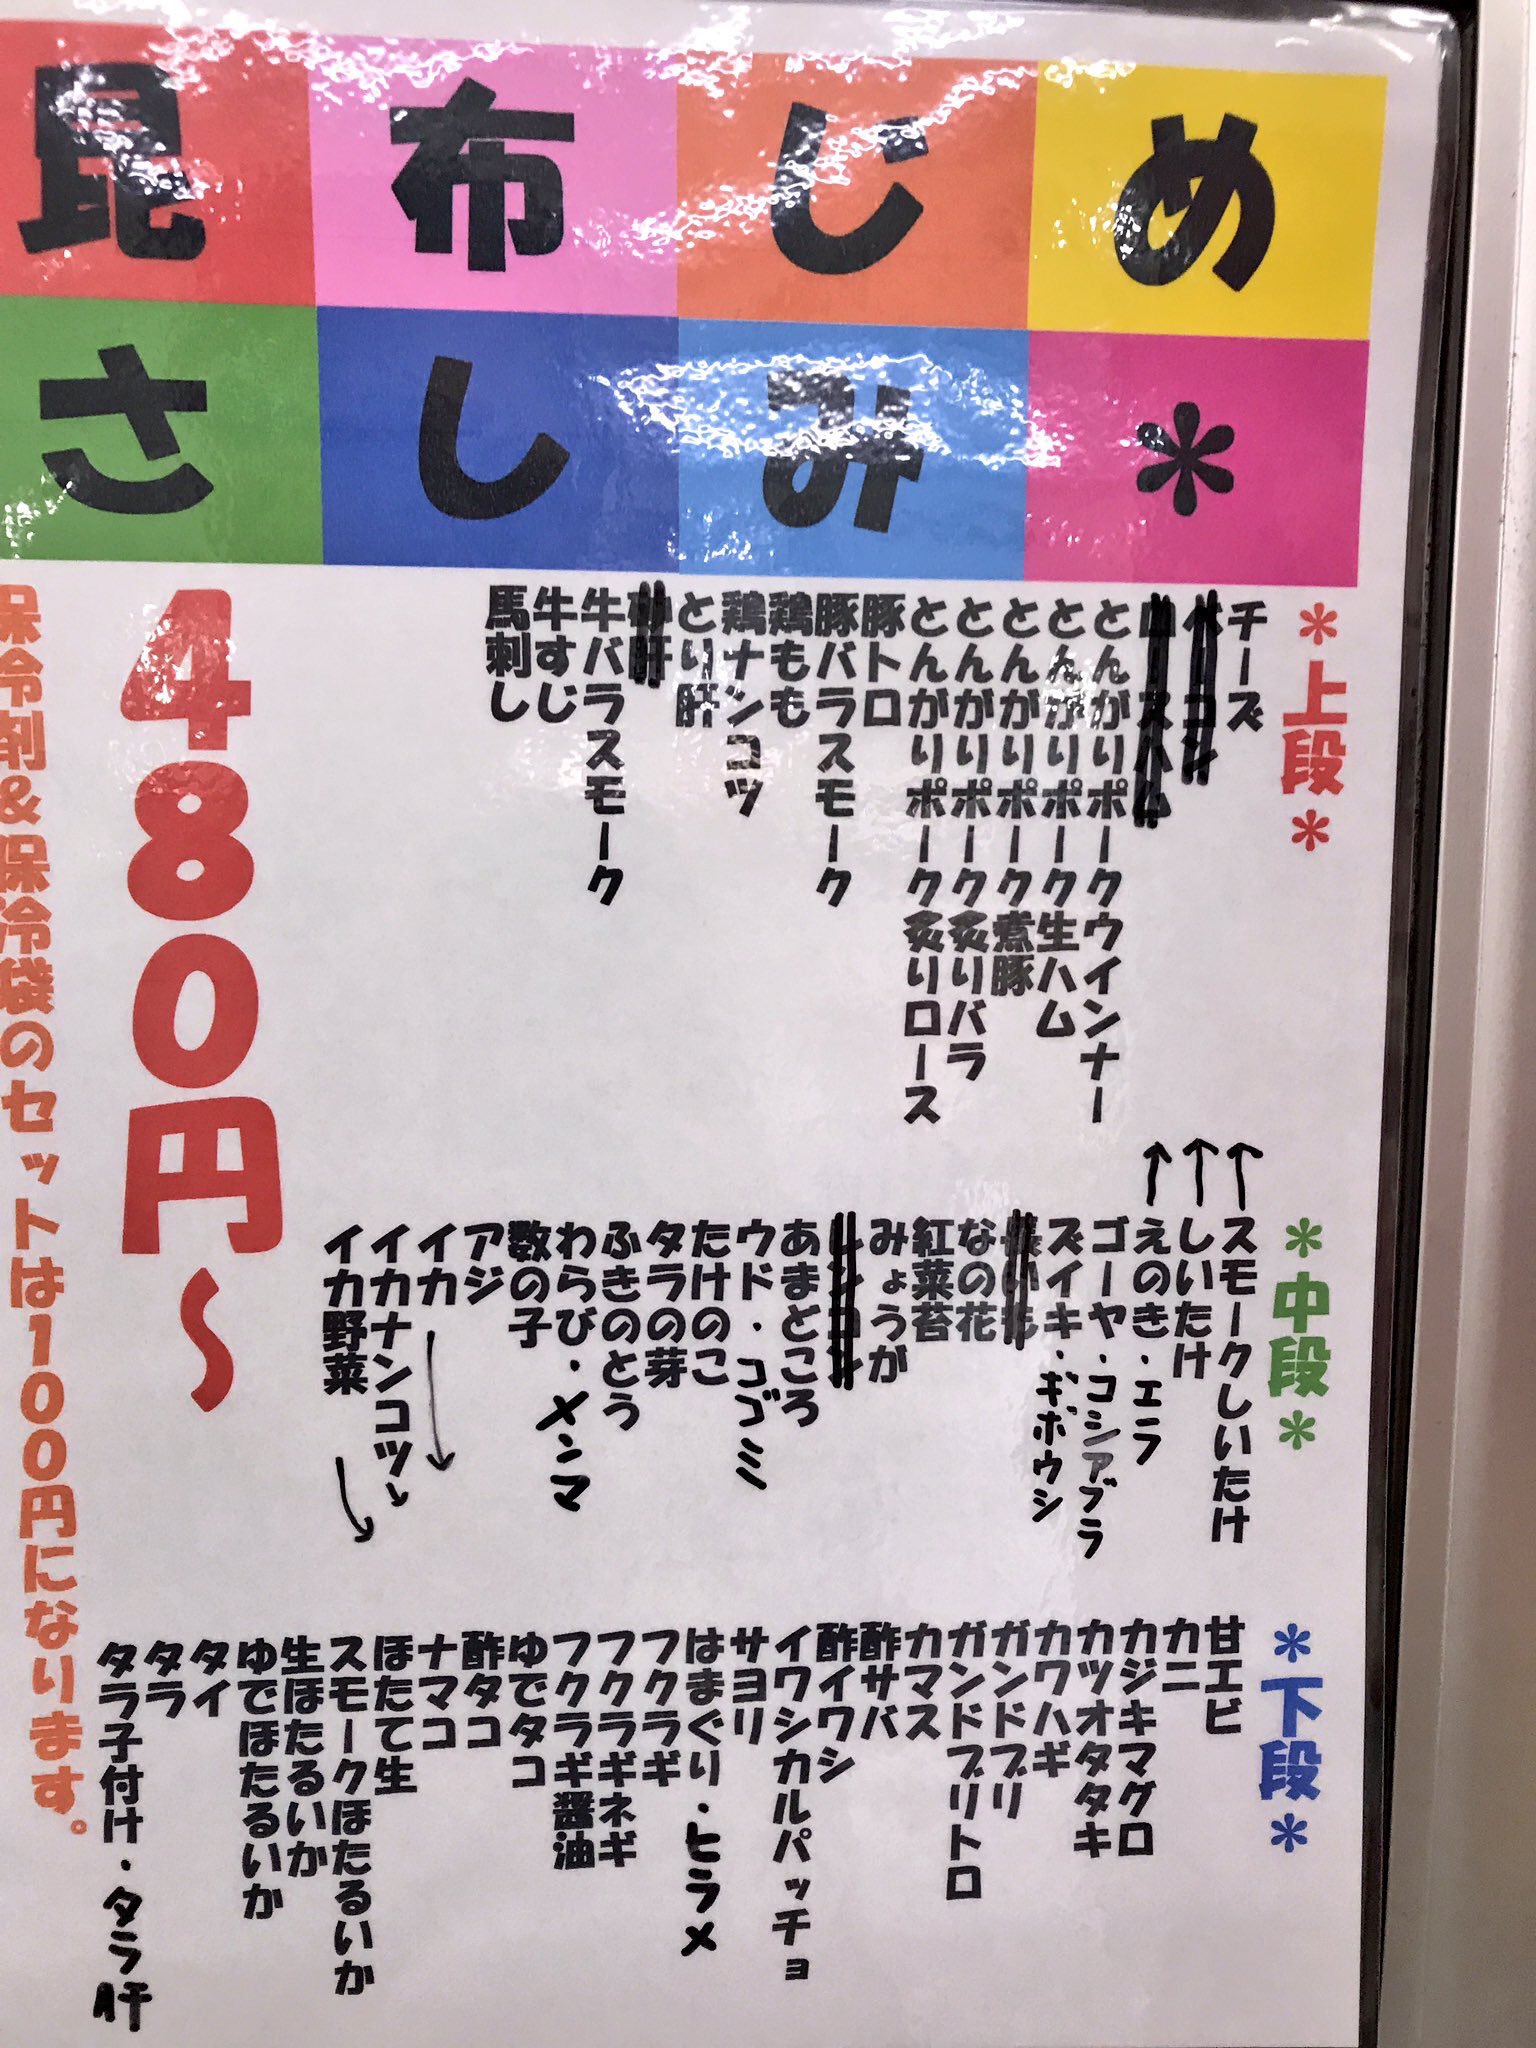 昆布じめ
さしみ*
*上段*
チーズ
ベーコン
ロースハム
とんがりポークウインナー
とんがりポーク生ハム
とんがりポーク煮豚
とんがりポーク炙りバラ
とんがりポーク炙りロース
豚トロ
豚バラスモーク
鶏もも
鶏ナンコツ
とり肝
砂肝
牛バラスモーク
牛すじ
馬刺し
*中段*
↑スモークしいたけ
↑しいたけ
↑えのき・エラ
ゴーヤ・コシアブラ
ズイキ・ギボウシ
長いも
なの花
紅菜苔
みょうが
レンコン
あまどころ
ウド・コゴミ
たけのこ
タラの芽
ふきのとう
わらび・メンマ
数の子
アジ
イカ→
イカナンコツ→
イカ野菜→
*下段*
甘エビ
カニ
カジキマグロ
カツオタタキ
カワハギ
ガンドブリ
ガンドブリトロ
カマス
酢サバ
酢イワシ
イワシカルパッチョ
サヨリ
はまぐり・ヒラメ
フクラギ
フクラギネギ
フクラギ醤油
ゆでタコ
酢タコ
ナマコ
ほたて生
スモークほたるいか
生ほたるいか
ゆでほたるいか
タイ
タラ
タラ子付け・タラ肝
480円~
保冷剤&保冷袋のセットは100円になります。